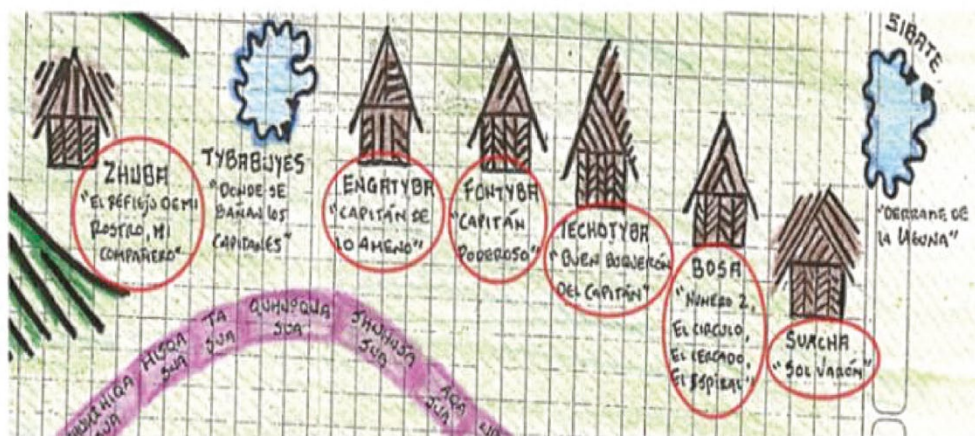 ZHUBA
"EL REFLEJO DE MI
ROSTRO, MI
COMPAÑERO"
TYBABUYES
"DONDE SE
BAÑAN LOS
CAPITANES"
ENGATYBA
"CAPITÁN DE
LO AMENO"
FONTYBA
"CAPITÁN
PODEROSO"
TECHOTYBA
"BUEN BOQUERÓN
DEL CAPITÁN"
BOSA
"NUMERO 2,
EL CIRCULO,
EL CERCADO,
EL ESPIRAL"
SUACHA
"SOL VARÓN"
SIBATE
"DERRAME DE
LA LAGUNA"
SUA
HISQA
SUA
TA
SUA
SUA
SUA
AQA
SUA